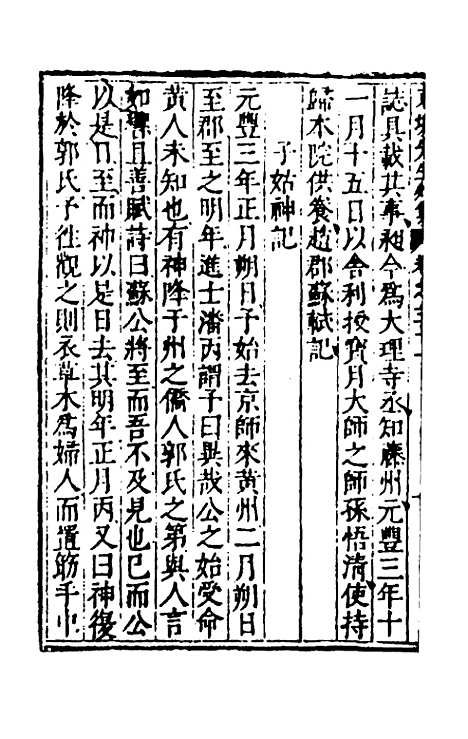 誌具載其事昶今爲大理寺丞知藤州元豐三年十
一月十五日以舍利授寶月大師之師孫悟清使持
歸本院供養趙郡蘇軾記
子姑神記
元豐三年正月朔日予始去京師來黃州二月朔日
至郡至之明年進士潘丙謂予曰異哉公之始受命
黃人未知也有神降于州之僑人郭氏之第與人言
如響且善賦詩曰蘇公將至而吾不及見也已而公
以是日至而神以是日去其明年正月丙又曰神復
降於郭氏予往觀之則衣草木爲婦人而置筯手中